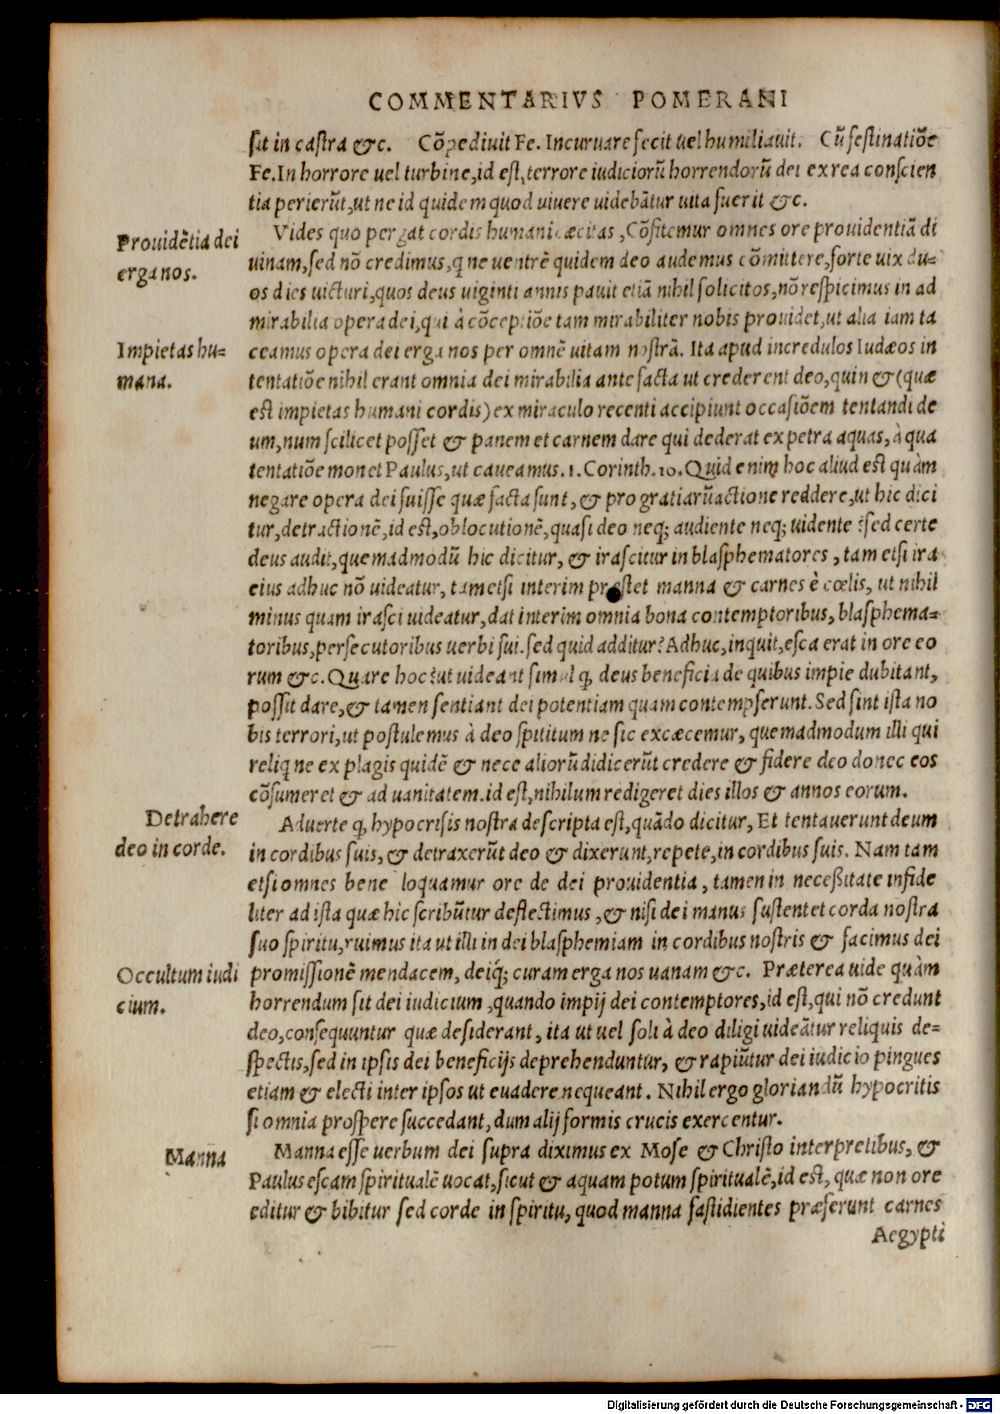 COMMENTARIVS POMERANI
sit in castra &c. Cõpediuit Fe. Incuruare fecit uel humiliauit. Cũ festinatiõe
Fe. In horrore uel turbine, id est, terrore iudiciorũ horrendorũ dei ex rea conscien
tia perierũt, ut ne id quidem quod uiuere uidebãtur uita fuerit &c.
Prouidẽtia dei
erga nos.
Vides quo pergat cordis humani cæcitas, Cõfitemur omnes ore prouidentiã di
uinam, sed nõ credimus, ꝙ ne uentrẽ quidem deo audemus cõmittere, forte uix du=
os dies uicturi, quos deus uiginti annis pauit etiã nihil solicitos, nõ respicimus in ad
mirabilia opera dei, qui à cõceptiõe tam mirabiliter nobis prouidet, ut alia iam ta
Impietas hu=
mana.
ceamus opera dei erga nos per omnẽ uitam nostrã. Ita apud incredulos Iudæos in
tentatiõe nihil erant omnia dei mirabilia ante facta ut crederent deo, quin & (quæ
est impietas humani cordis) ex miraculo recenti accipiunt occasiõem tentandi de
um, num scilicet posset & panem et carnem dare qui dederat ex petra aquas, à qua
tentatiõe monet Paulus, ut caueamus. 1. Corinth. 10. Quid enim hoc aliud est quàm
negare opera dei fuisse quæ facta sunt, & pro gratiarũactione reddere, ut hic dici
tur, detractionẽ, id est, oblocutionẽ, quasi deo neq; audiente neq; uidente? sed certe
deus audit, quemadmodũ hic dicitur, & irascitur in blasphematores, tam etsi ira
eius adhuc nõ uideatur, tametsi interim præstet manna & carnes è cœlis, ut nihil
minus quam irasci uideatur, dat interim omnia bona contemptoribus, blasphema=
toribus, persecutoribus uerbi sui. sed quid additur? Adhuc, inquit, esca erat in ore eo
rum &c. Quare hoc? ut uideant simul ꝙ deus beneficia de quibus impie dubitant,
possit dare, & tamen sentiant dei potentiam quam contempserunt. Sed sint ista no
bis terrori, ut postulemus à deo spititum ne sic excæcemur, quemadmodum illi qui
reliq ne ex plagis quidẽ & nece aliorũ didicerũt credere & fidere deo donec eos
cõsumeret & ad uanitatem. id est, nihilum redigeret dies illos & annos eorum.
Detrahere
deo in corde.
Aduerte ꝙ hypocrisis nostra descripta est, quãdo dicitur, Et tentauerunt deum
in cordibus suis, & detraxerũt deo & dixerunt, repete, in cordibus suis. Nam tam
etsi omnes bene loquamur ore de dei prouidentia, tamen in necessitate infide
liter ad ista quæ hic scribũtur deflectimus, & nisi dei manus sustentet corda nostra
suo spiritu, ruimus ita ut illi in dei blasphemiam in cordibus nostris & facimus dei
Occultum iudi
cium.
promissionẽ mendacem, deiq́; curam erga nos uanam &c. Præterea uide quàm
horrendum sit dei iudicium, quando impij dei contemptores, id est, qui nõ credunt
deo, consequuntur quæ desiderant, ita ut uel soli à deo diligi uideãtur reliquis de=
spectis, sed in ipsis dei beneficijs deprehenduntur, & rapiũtur dei iudicio pingues
etiam & electi inter ipsos ut euadere nequeant. Nihil ergo gloriandũ hypocritis
si omnia prospere succedant, dum alij formis crucis exercentur.
Manna
Manna esse uerbum dei supra diximus ex Mose & Christo interpretibus, &
Paulus escam spiritualẽ uocat, sicut & aquam potum spiritualẽ, id est, quæ non ore
editur & bibitur sed corde in spiritu, quod manna fastidientes præferunt carnes
Aegypti
Digitalisierung gefördert durch die Deutsche Forschungsgemeinschaft - DFG